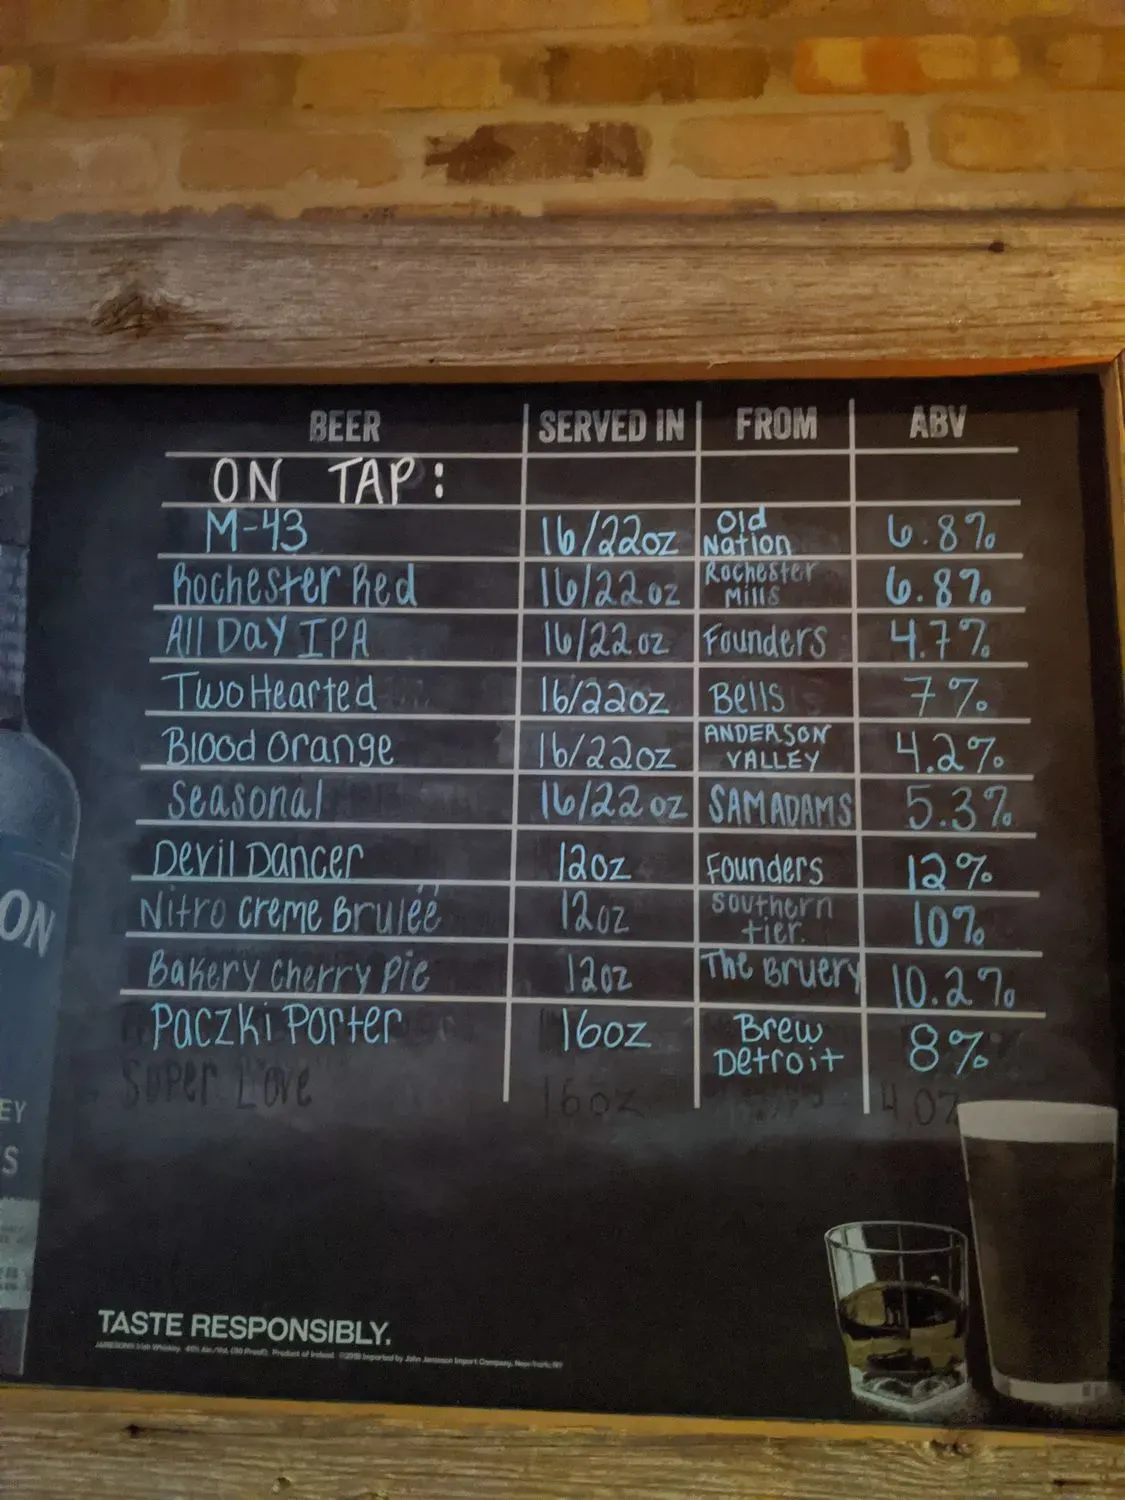 BEER SERVED IN FROM ABV
ON TAP:
M-43 16/22oz Old Nation 6.8%
Rochester Red 16/22oz Rochester Mills 6.8%
All Day IPA 16/22oz Founders 4.7%
Two Hearted 16/22oz Bells 7%
Blood Orange 16/22oz ANDERSON VALLEY 4.2%
Seasonal 16/22oz SAM ADAMS 5.3%
Devil Dancer 12oz Founders 12%
Nitro Creme Bruléé 12oz Southern tier. 10%
Bakery Cherry Pie 12oz The Bruery 10.2%
Paczki Porter 16oz Brew Detroit 8%
Super Love 16oz
ON
EY
S
TASTE RESPONSIBLY.
JAMESON® Irish Whiskey. 40% Alc./Vol. (80 Proof). Product of Ireland. ©2018 Imported by John Jameson Import Company, New York, NY